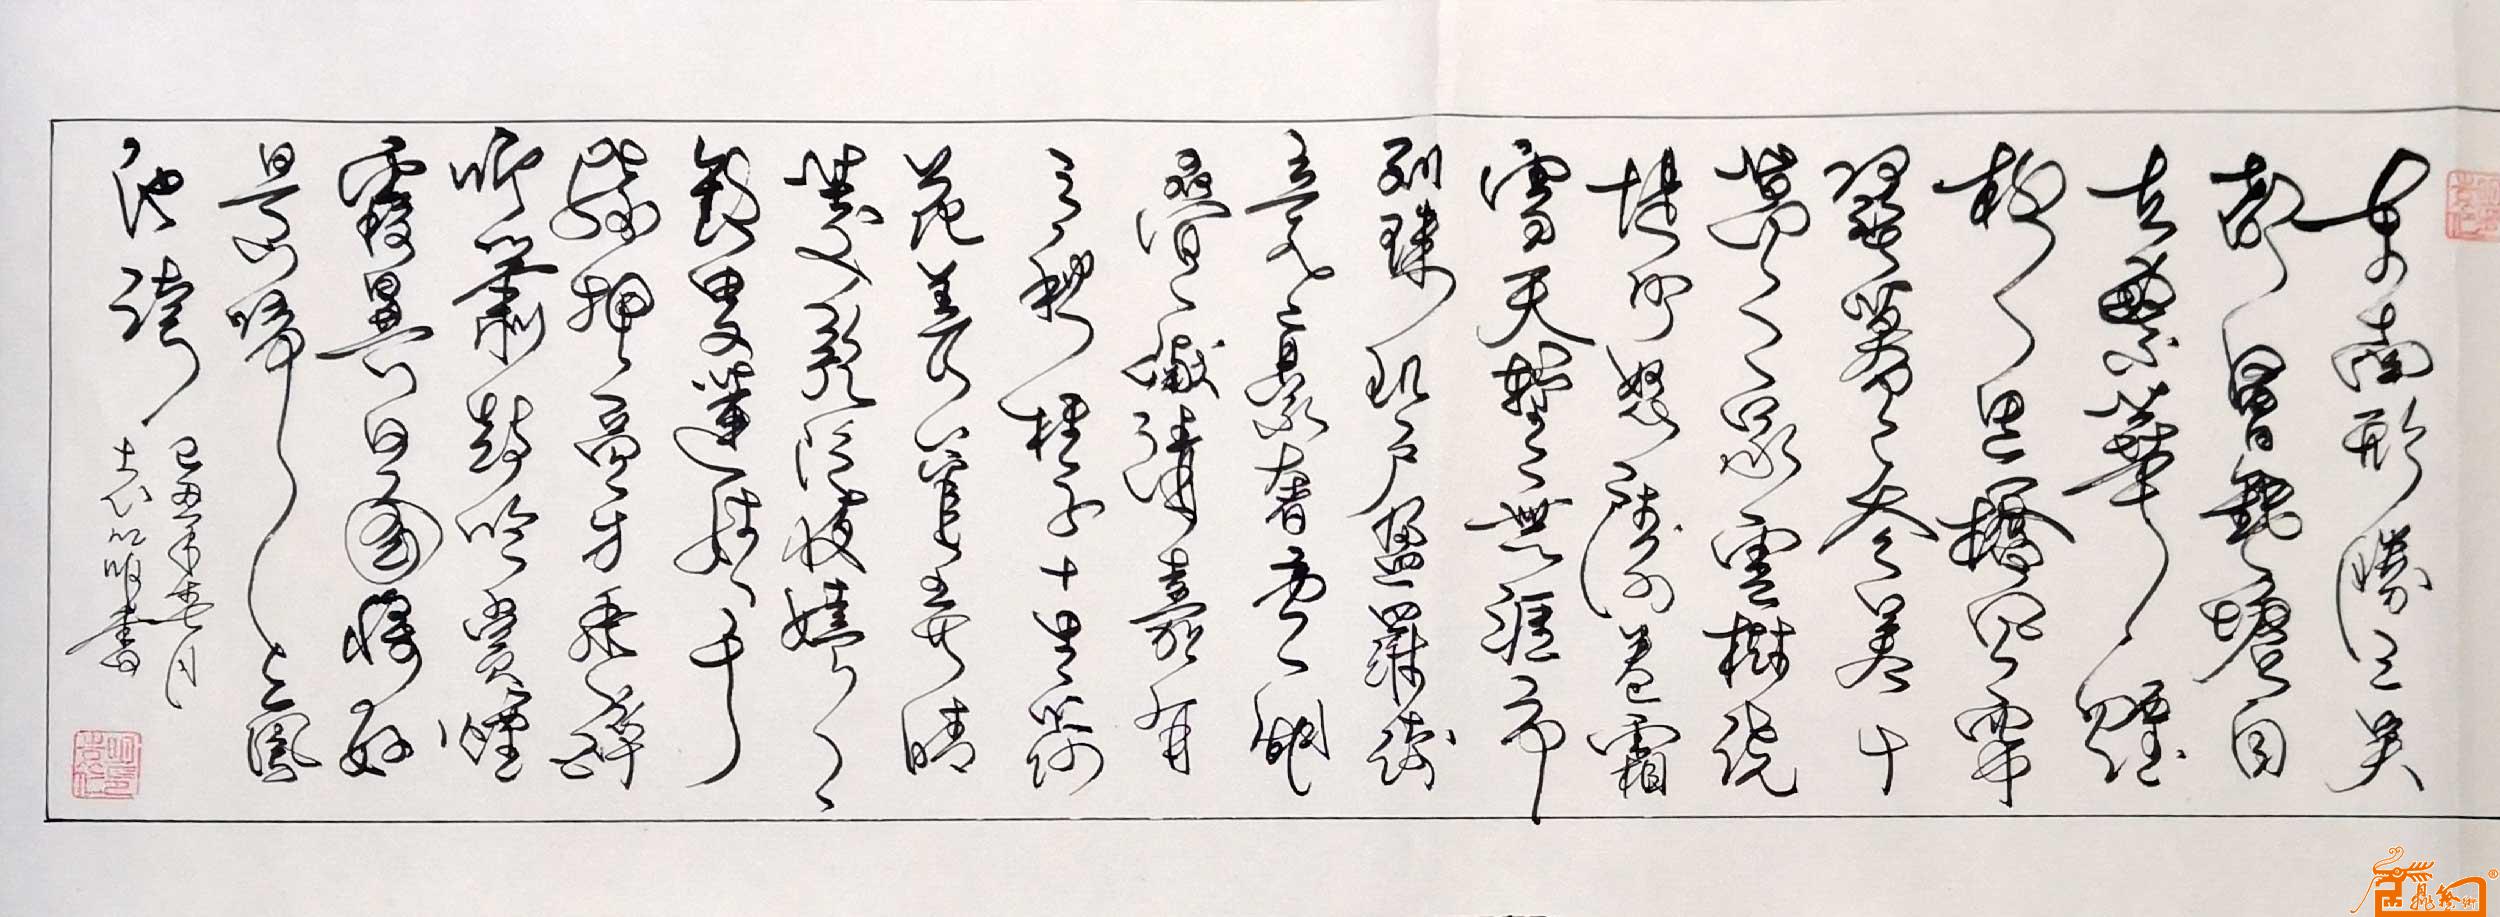 東南形勝三吳
都會錢塘自
古繁華煙
柳畫橋風簾
翠幕參差十
萬人家雲樹繞
堤沙怒濤卷霜
雪天塹無涯市
列珠璣戶盈羅綺
競豪奢重湖
疊巘清嘉有
三秋桂子十里荷
花羌管弄晴
菱歌泛夜嬉嬉
釣叟蓮娃千
騎擁高牙乘醉
聽簫鼓吟賞煙
霞異日圖將好
景歸去鳳
池誇
己丑年春月
書